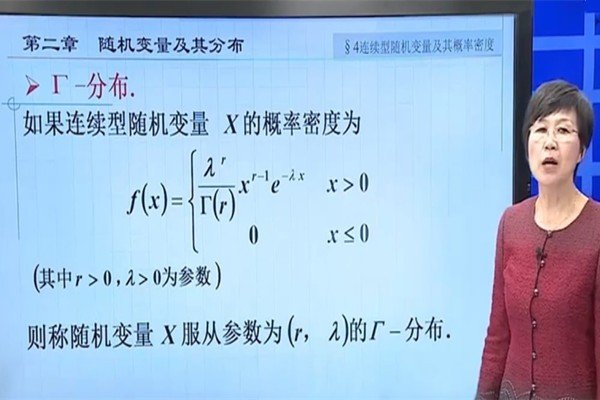 第二章 随机变量及其分布
§4连续型随机变量及其概率密度
➢ Γ-分布.
如果连续型随机变量 X 的概率密度为
f(x)={ λ^r/Γ(r) x^{r-1} e^{-λx} x>0
0 x≤0
(其中r>0,λ>0为参数)
则称随机变量 X 服从参数为(r, λ)的Γ-分布.